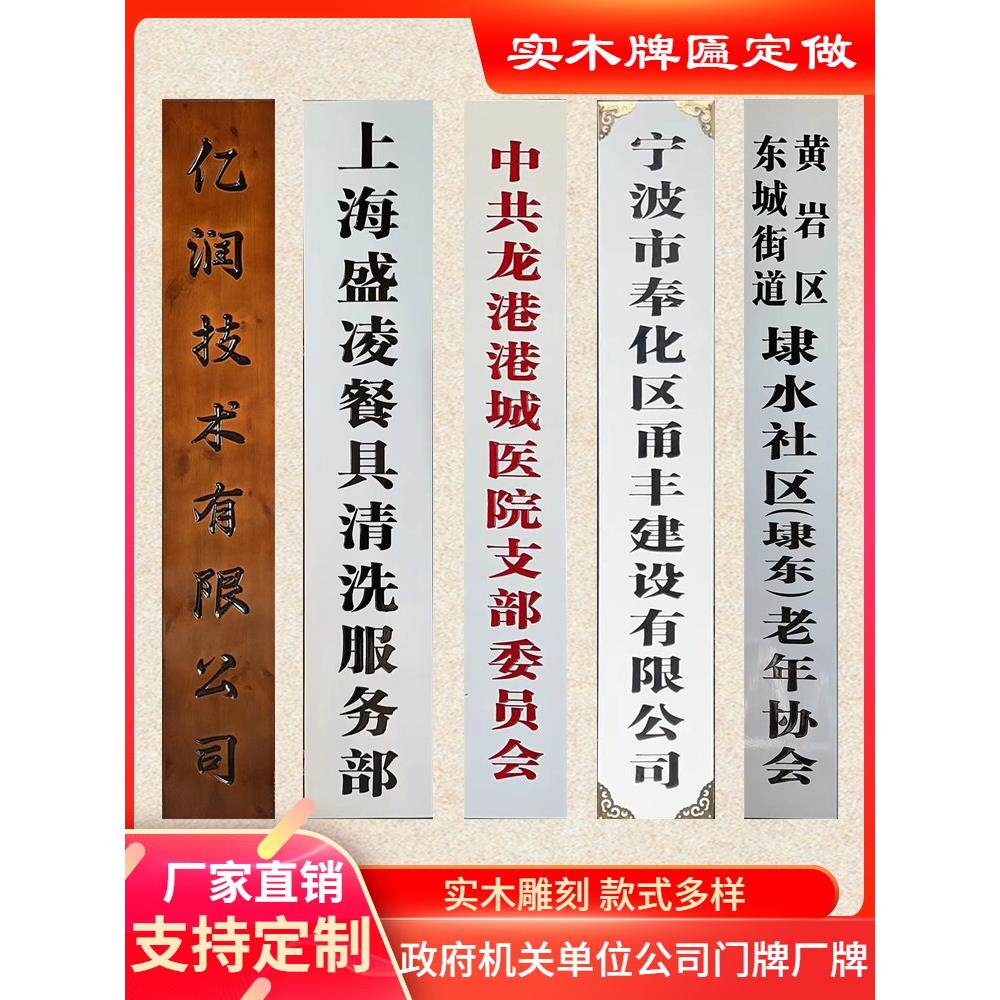 实木牌匾定做
亿润技术有限公司
上海盛凌餐具清洗服务部
中共龙港港城医院支部委员会
宁波市奉化区甬丰建设有限公司
黄岩区
东城街道
埭水社区(埭东)老年协会
厂家直销
支持定制
实木雕刻 款式多样
政府机关单位公司门牌厂牌